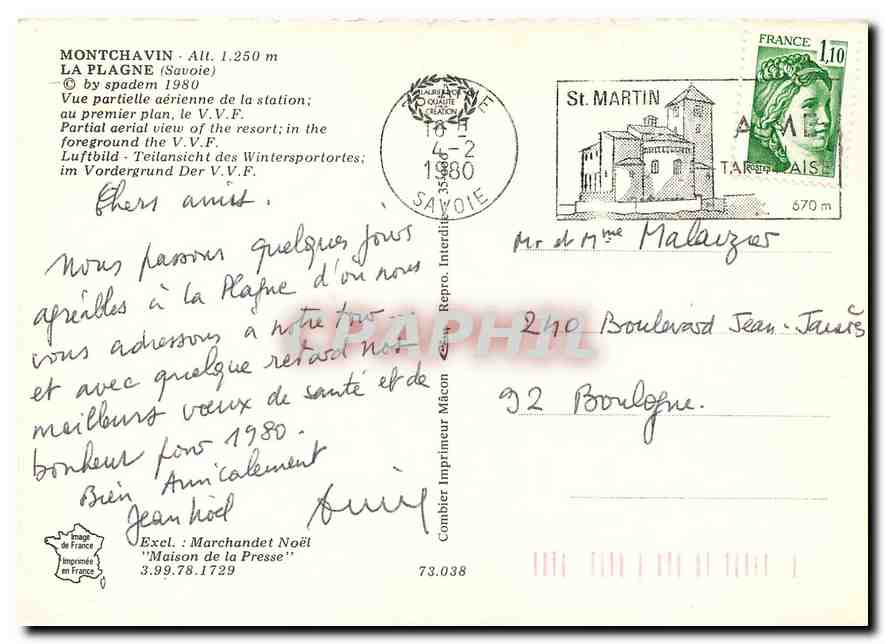 MONTCHAVIN - Alt. 1.250 m
LA PLAGNE (Savoie)
© by spadem 1980
Vue partielle aérienne de la station;
au premier plan, le V.V.F.
Partial aerial view of the resort; in the
foreground the V.V.F.
Luftbild - Teilansicht des Wintersportortes;
im Vordergrund Der V.V.F.
Chers amis.
Nous passons quelques jours
agréables à la Plagne d'où nous
vous adressons a notre tour
et avec quelque retard nos
meilleurs vœux de santé et de
bonheur pour 1980.
Bien Amicalement
Jean Noël
Image
de France
Imprimée
en France
Excl. : Marchandet Noël
"Maison de la Presse"
3.99.78.1729
73.038
Combier Imprimeur Mâcon
Repro. Interdite
QUALITÉ
4-2
1980
SAVOIE
St. MARTIN
AIME
TARENTAISE
670 m
FRANCE
1,10
Mr et Mme Malauzier
240 Boulevard Jean-Jaurès
92 Boulogne.
CPAPHIL